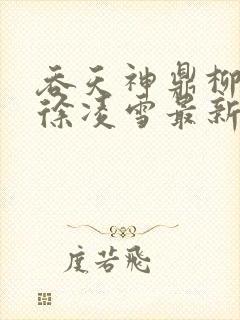 吞天神鼎柳
徐凌雪最新
度若飞